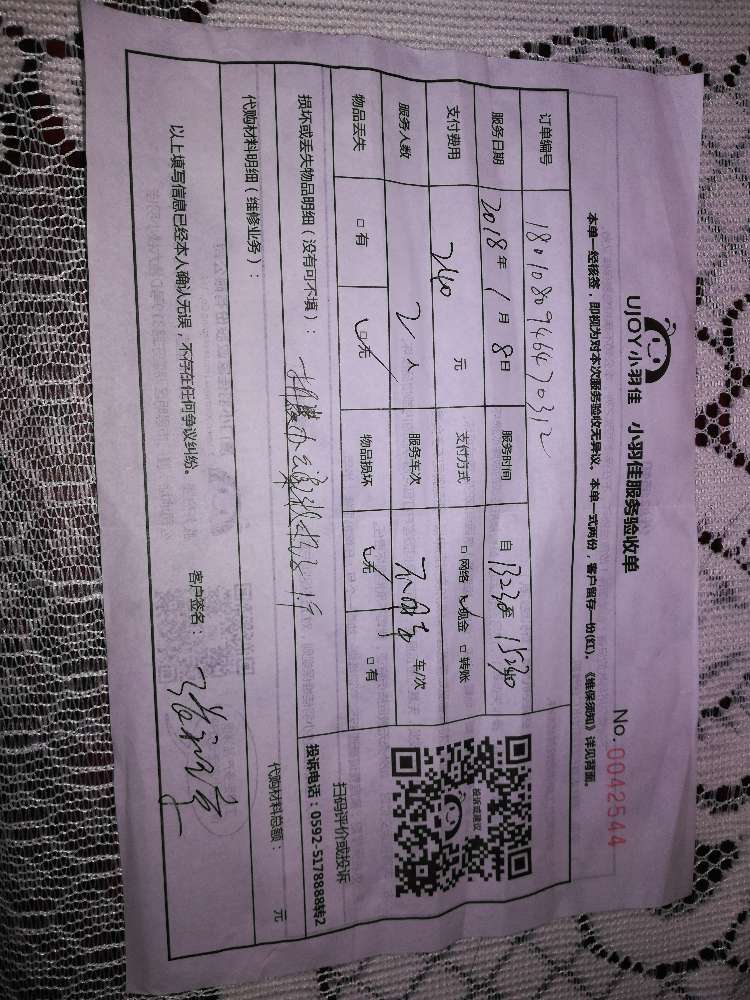 UJOY小羽佳 小羽佳服务验收单 No.0042544
本单一经核签，即视为对本次服务验收无异议。本单一式两份，客户留存一份(红)。《维保须知》详见背面。
订单编号 180108094647 0312
服务日期 2018年1月8日 服务时间 自1323至1523
支付费用 240元 支付方式 □网络 □现金 □转账
服务人数 2人 服务车次 车/次
物品丢失 □有 □无 物品损坏 □无 □有
投诉或建议
扫码评价或投诉
损坏或丢失物品明细（没有可不填）： 投诉电话：0592-5178888转2
代购材料明细（维修业务）： 代购材料总额： 元
以上填写信息已经本人确认无误，不存在任何争议纠纷。 客户签名：